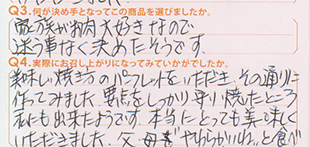 Q3.何が決め手となってこの商品を選びましたか。
家族がお肉大好きなので
迷う事なく決めたそうです。
Q4.実際にお召し上がりになってみていかがでしたか。
美味しい焼き方のパンフレットをいただき、その通りに
作ってみました。要点をしっかり守り焼いたところ
私にも出来たようです。本当にとっても美味しく
いただきました。父、母も"やわらかいね。と食べ